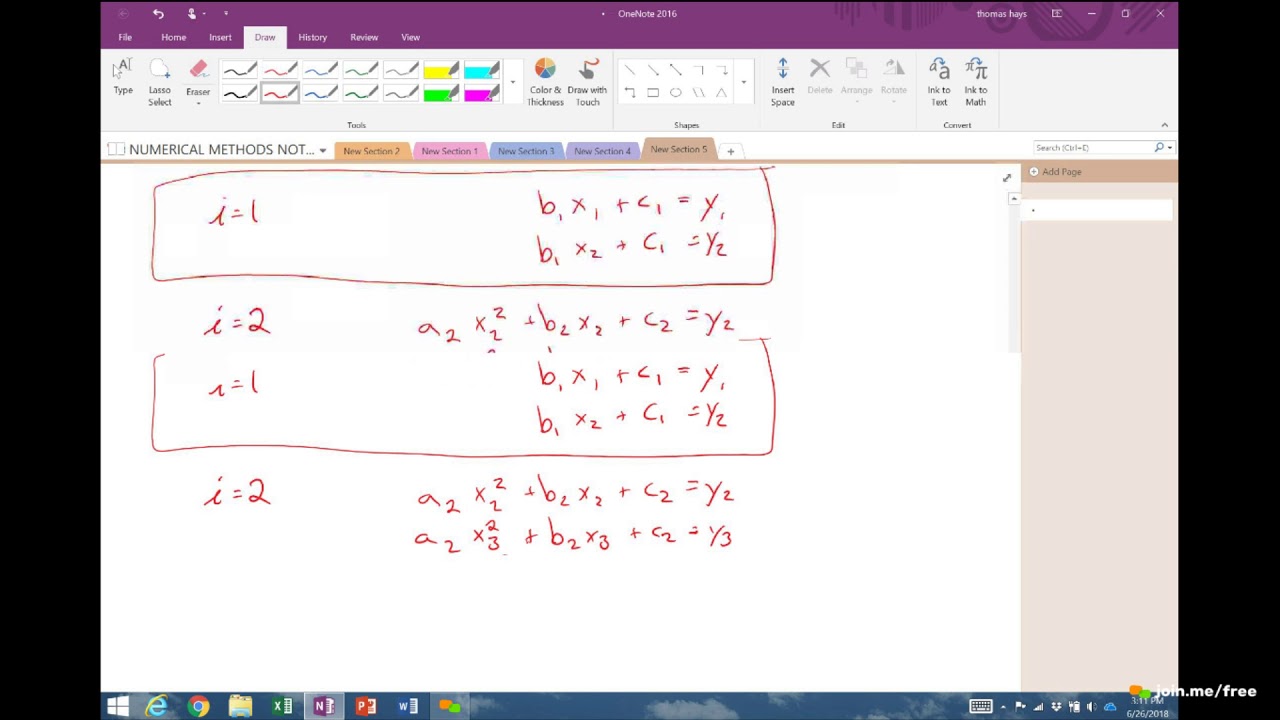 OneNote 2016
thomas hays
File Home Insert Draw History Review View
Type
Lasso Select
Eraser
Color & Thickness
Draw with Touch
Insert Space
Delete
Arrange
Rotate
Ink to Text
Ink to Math
Tools
Shapes
Edit
Convert
NUMERICAL METHODS NOT...
New Section 2
New Section 1
New Section 3
New Section 4
New Section 5
Search (Ctrl+E)
Add Page
i=1 b₁x₁ + c₁ = y₁
b₁ x₂ + c₁ = y₂
i=2 a₂ x₂² + b₂ x₂ + c₂ = y₂
i=1 b₁x₁ + c₁ = y₁
b₁ x₂ + c₁ = y₂
i=2 a₂ x₂² + b₂ x₂ + c₂ = y₂
a₂ x₃² + b₂x₃ + c₂ = y₃
join.me/free
3:11 PM
6/26/2018